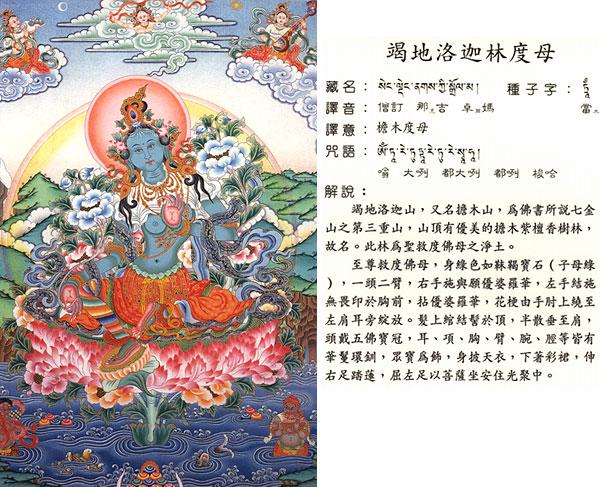 竭地洛迦林度母
藏名： སེང་ལྡེང་ནགས་ཀྱི་སྒྲོལ་མ། 種子字：
譯音：僧訂 那 吉 卓 媽 當
譯意：檐木度母
咒語：ཨོཾ་ཏཱ་རེ་ཏུཏྟཱ་རེ་ཏུ་རེ་སྭཱ་ཧཱ།
嗡 大咧 都大咧 都咧 梭哈
解說：
竭地洛迦山，又名擔木山，爲佛書所說七金
山之第三重山，山頂有優美的擔木紫檀香樹林，
故名。此林爲聖救度佛母之淨土。
至尊救度佛母，身綠色如靺鞨寶石（子母綠
），一頭二臂，右手施與願優婆羅華，左手結施
無畏印於胸前，拈優婆羅華，花梗由手肘上繞至
左肩耳旁綻放。髮上綰結髻於頂，半散垂至肩，
頭戴五佛寶冠，耳、項、胸、臂、腕、脛等皆有
華鬘環釧，眾寶爲飾，身披天衣，下著彩裙，伸
右足踏蓮，屈左足以菩薩坐安住光聚中。